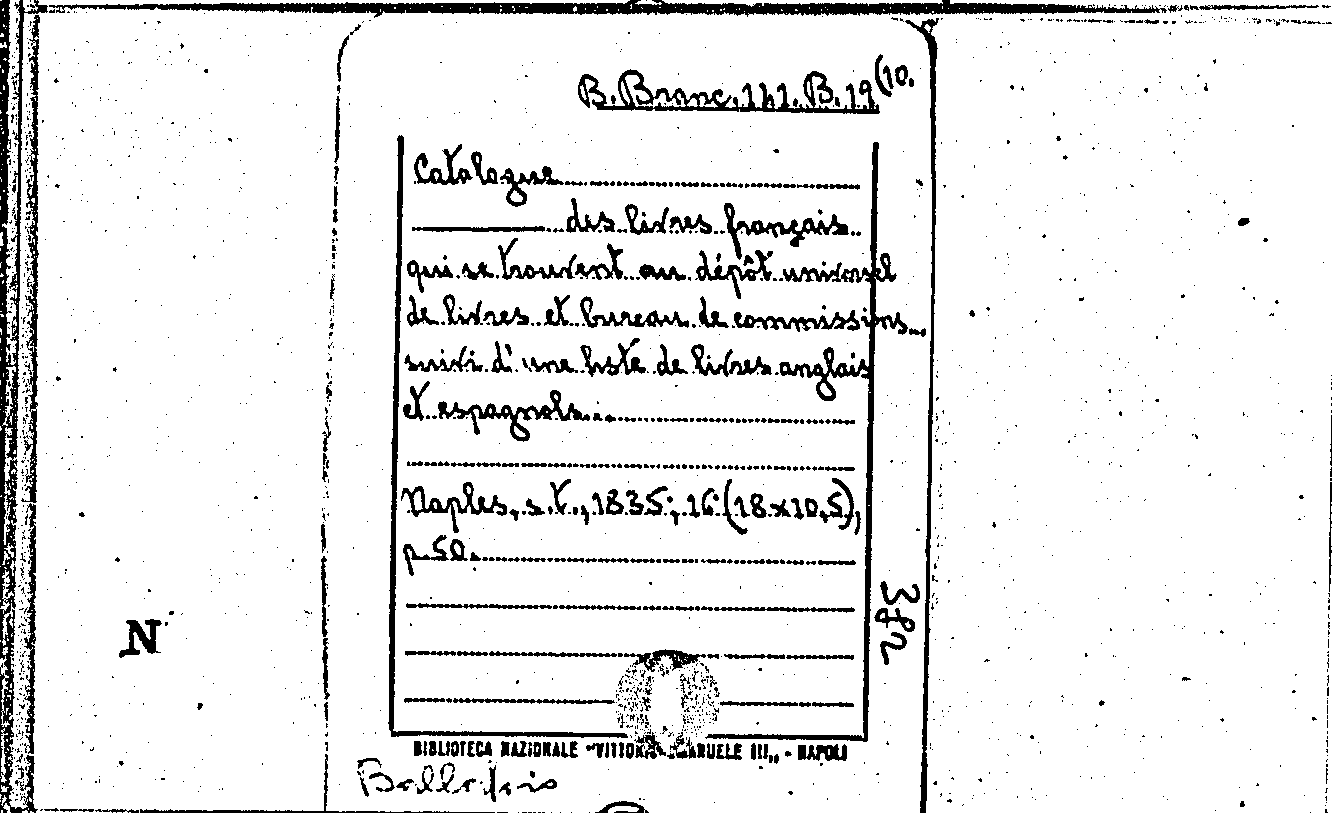 B. Branc. 141. B. 19 (10.
Catalogue
des livres français
qui se trouvent au dépôt universel
de livres et bureau de commissions...
suivi d'une liste de livres anglais
et espagnols...
Naples, s.t., 1835; 16° (18x10,5),
p. 50.
N
BIBLIOTECA NAZIONALE "VITTORIO EMANUELE III" - NAPOLI